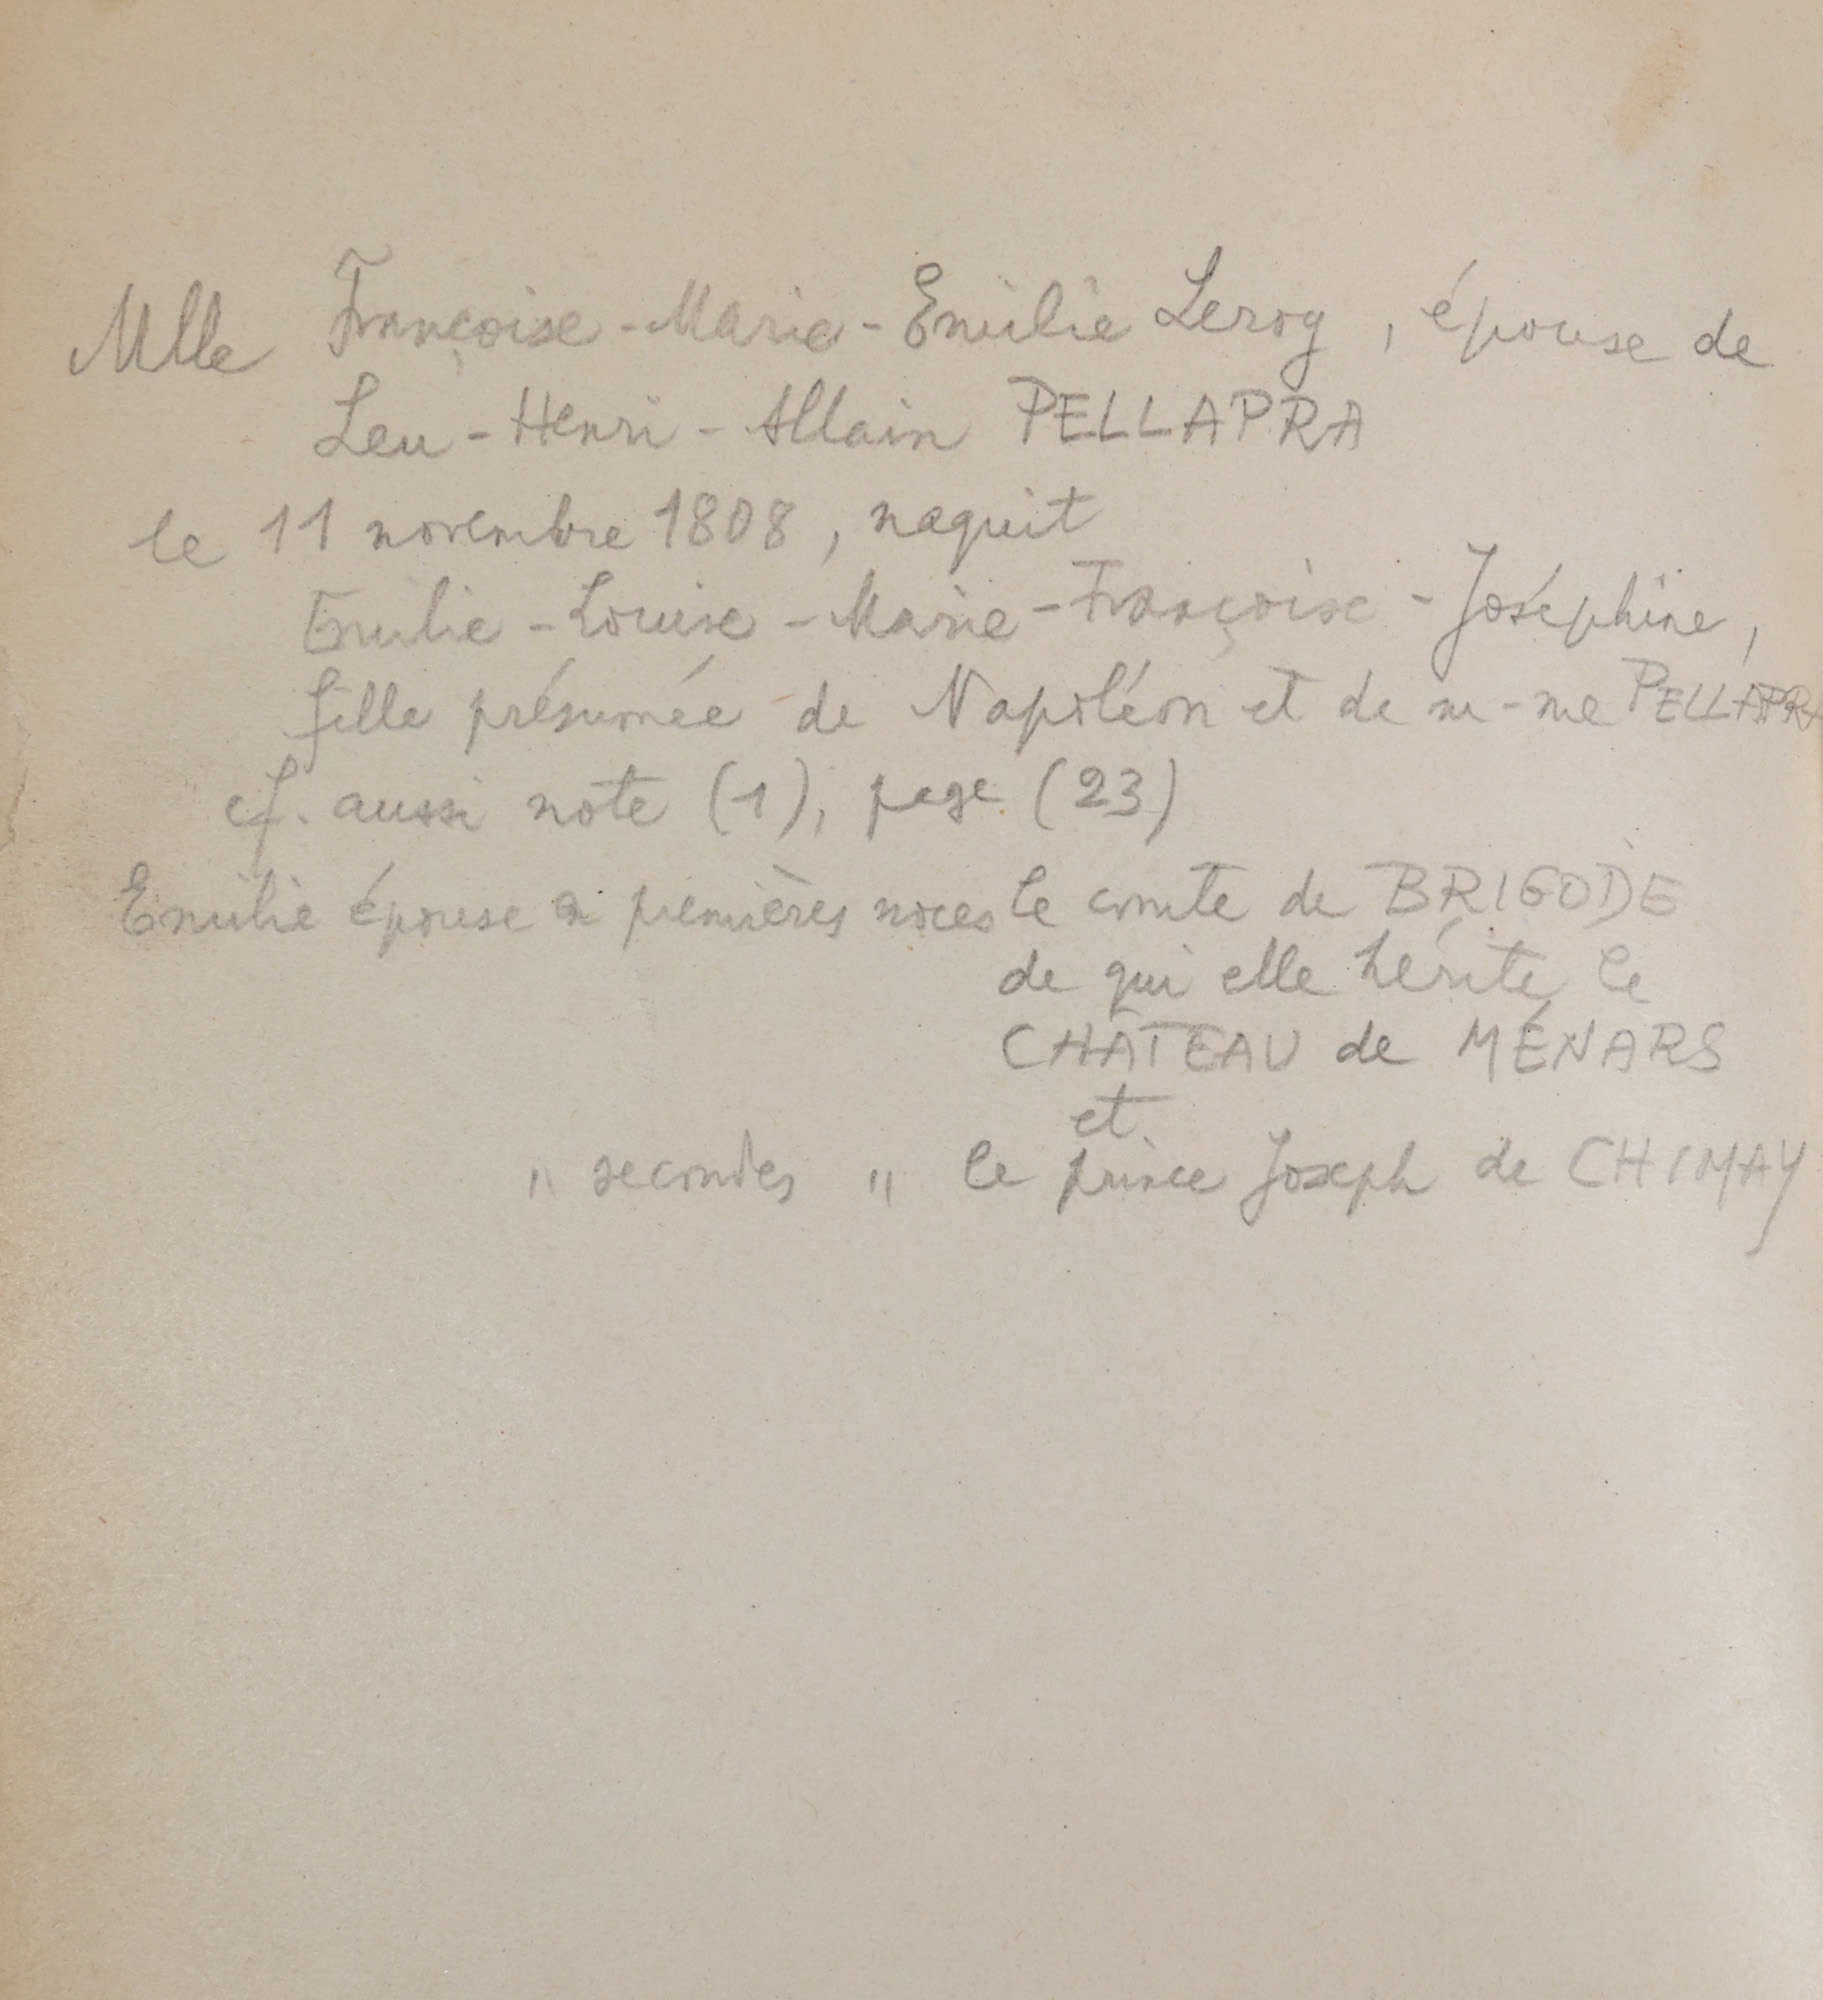 Mlle Françoise-Marie-Emilie Leroy, épouse de
Leu-Henri-Allain PELLAPRA
le 11 novembre 1808, naquit
Emilie-Louise-Marie-Françoise-Joséphine,
fille présumée de Napoléon et de m-me PELLAPRA
cf. aussi note (1), page (23)
Emilie épouse en premières noces le comte de BRIGODE
de qui elle hérite le
CHÂTEAU de MÉNARS
et
" secondes " le prince Joseph de CHIMAY